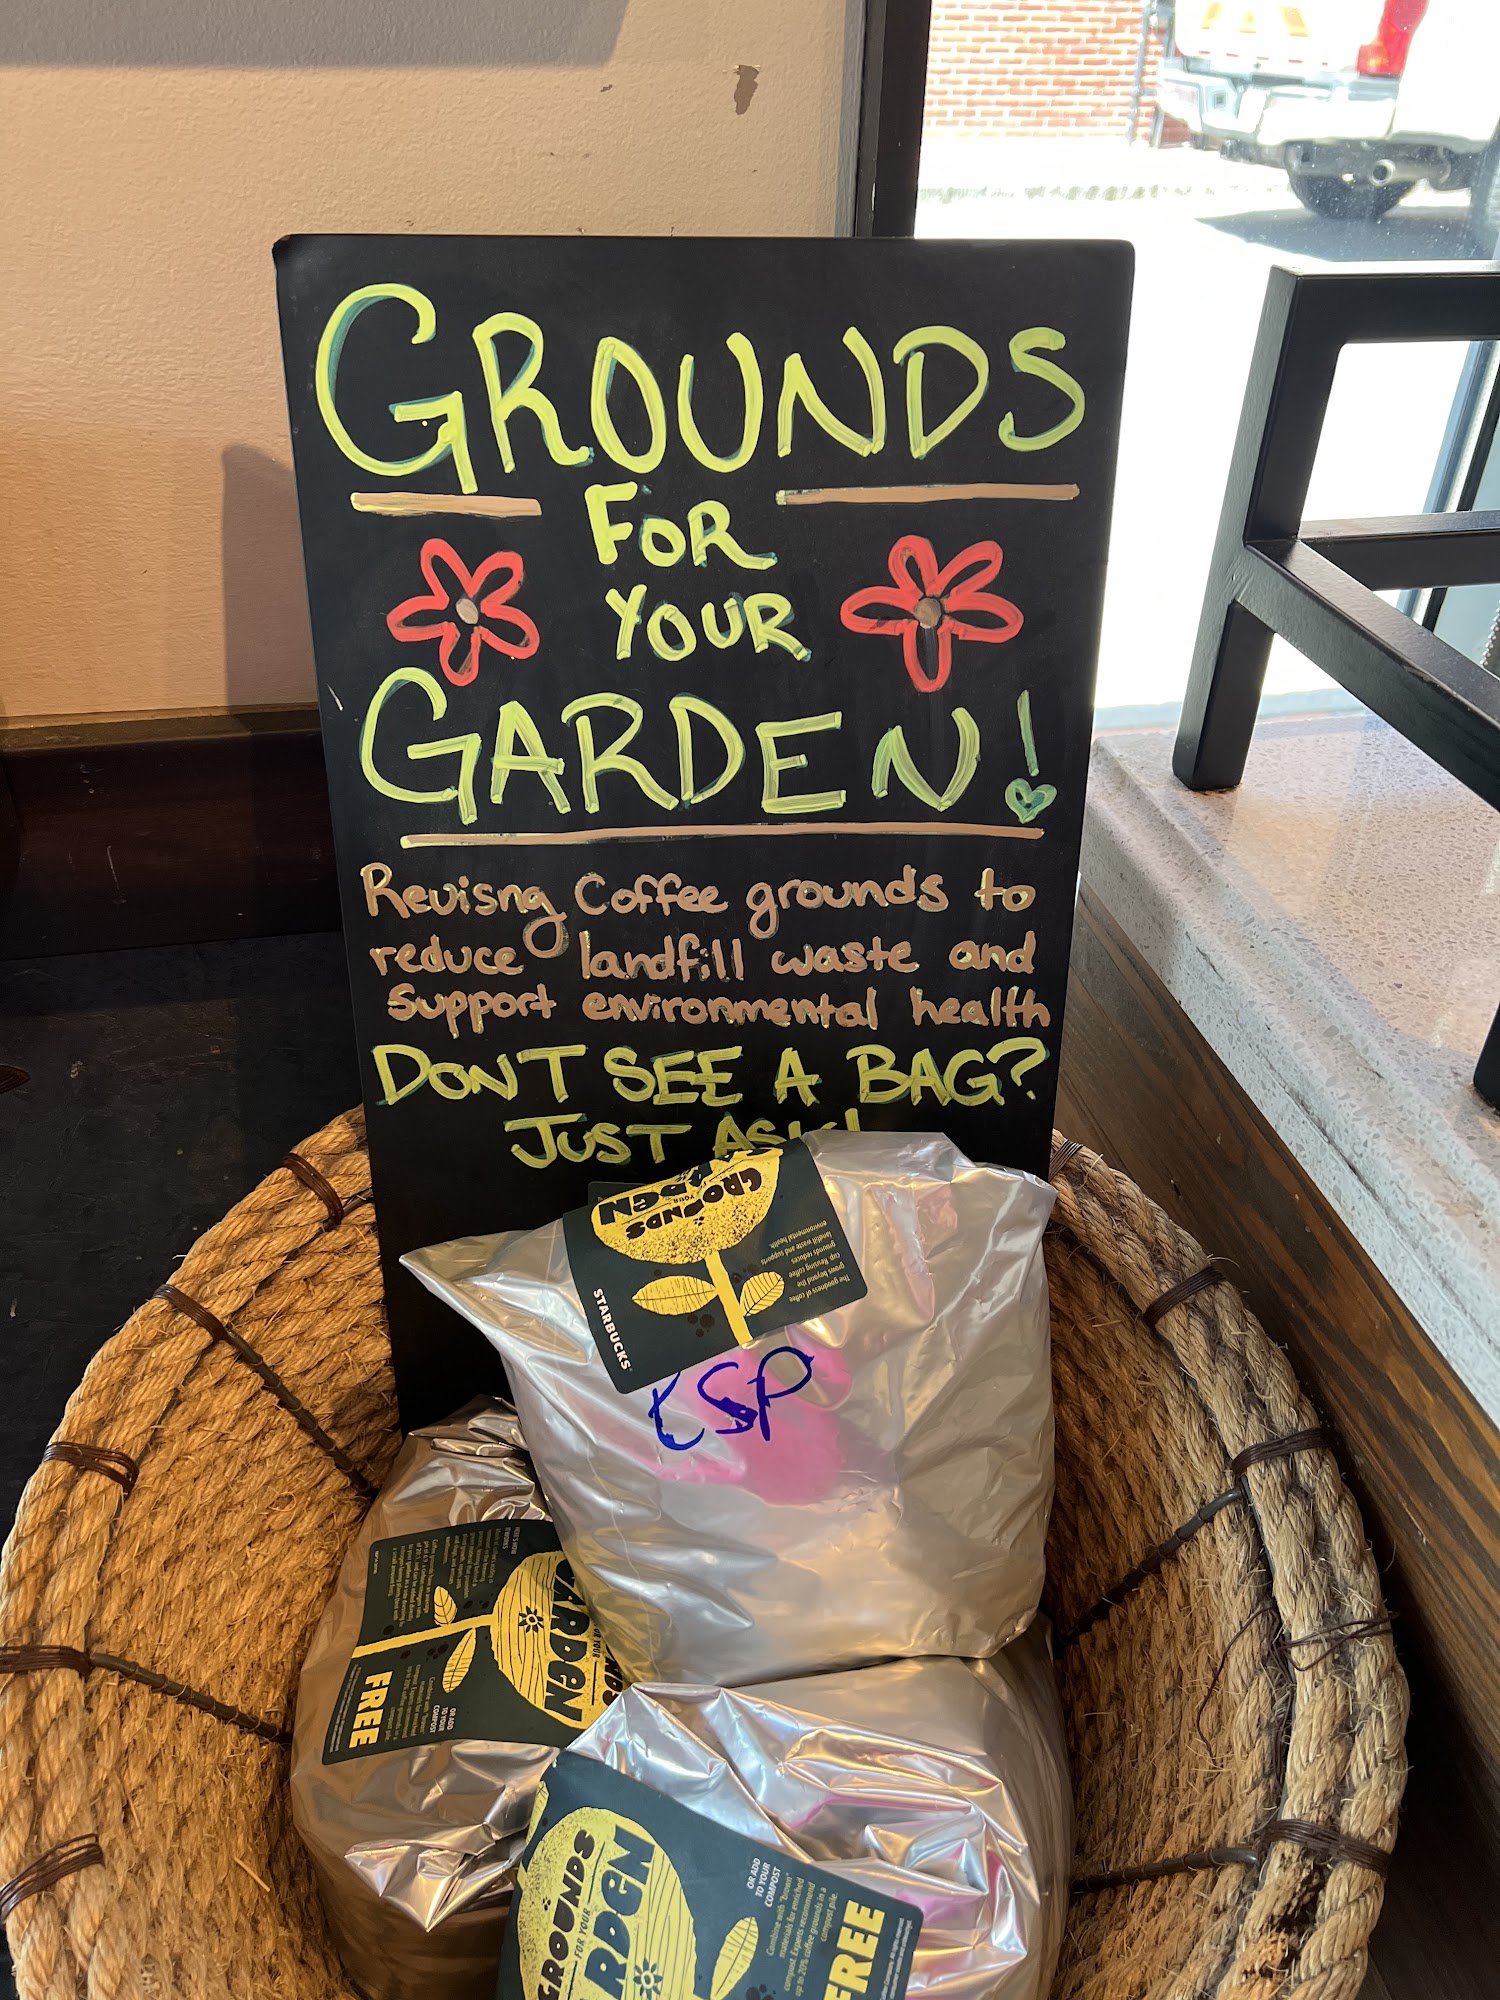 GROUNDS
FOR
YOUR
GARDEN!
Reuisng Coffee grounds to
reduce landfill waste and
support environmental health
DON'T SEE A BAG?
JUST ASK!
GROUNDS
FOR YOUR
GARDEN
The goodness of coffee
grows beyond the
cup. Reusing coffee
grounds reduces
landfill waste and supports
environmental health.
STARBUCKS
ESP
HERE'S HOW
IT WORKS
GARDEN
OR ADD
TO YOUR
COMPOST
FREE
GROUNDS
FOR YOUR
GARDEN
OR ADD
TO YOUR
COMPOST
Combine with "brown"
materials for enriched
compost. Experts recommend
up to 20% coffee grounds in a
compost pile.
FREE